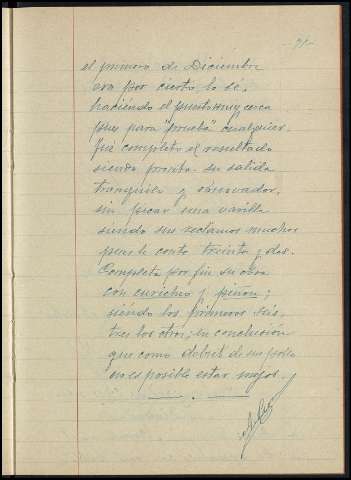 -71-
el primero de Diciembre
era por cierto lo sé,
haciendo el puesto muy cerca
pues para "prueba" cualquier.
Fué completo el resultado
siendo pronta su salida
tranquila y
sin picar una varilla
siendo sus reclamos muchos
pues le conto treinta y dos.
Completa por fin su obra
con curicheo y piñon;
siendo los primeros seis,
tres los otros; en conclusión
que como debut de un pollo
no es posible estar mejor.